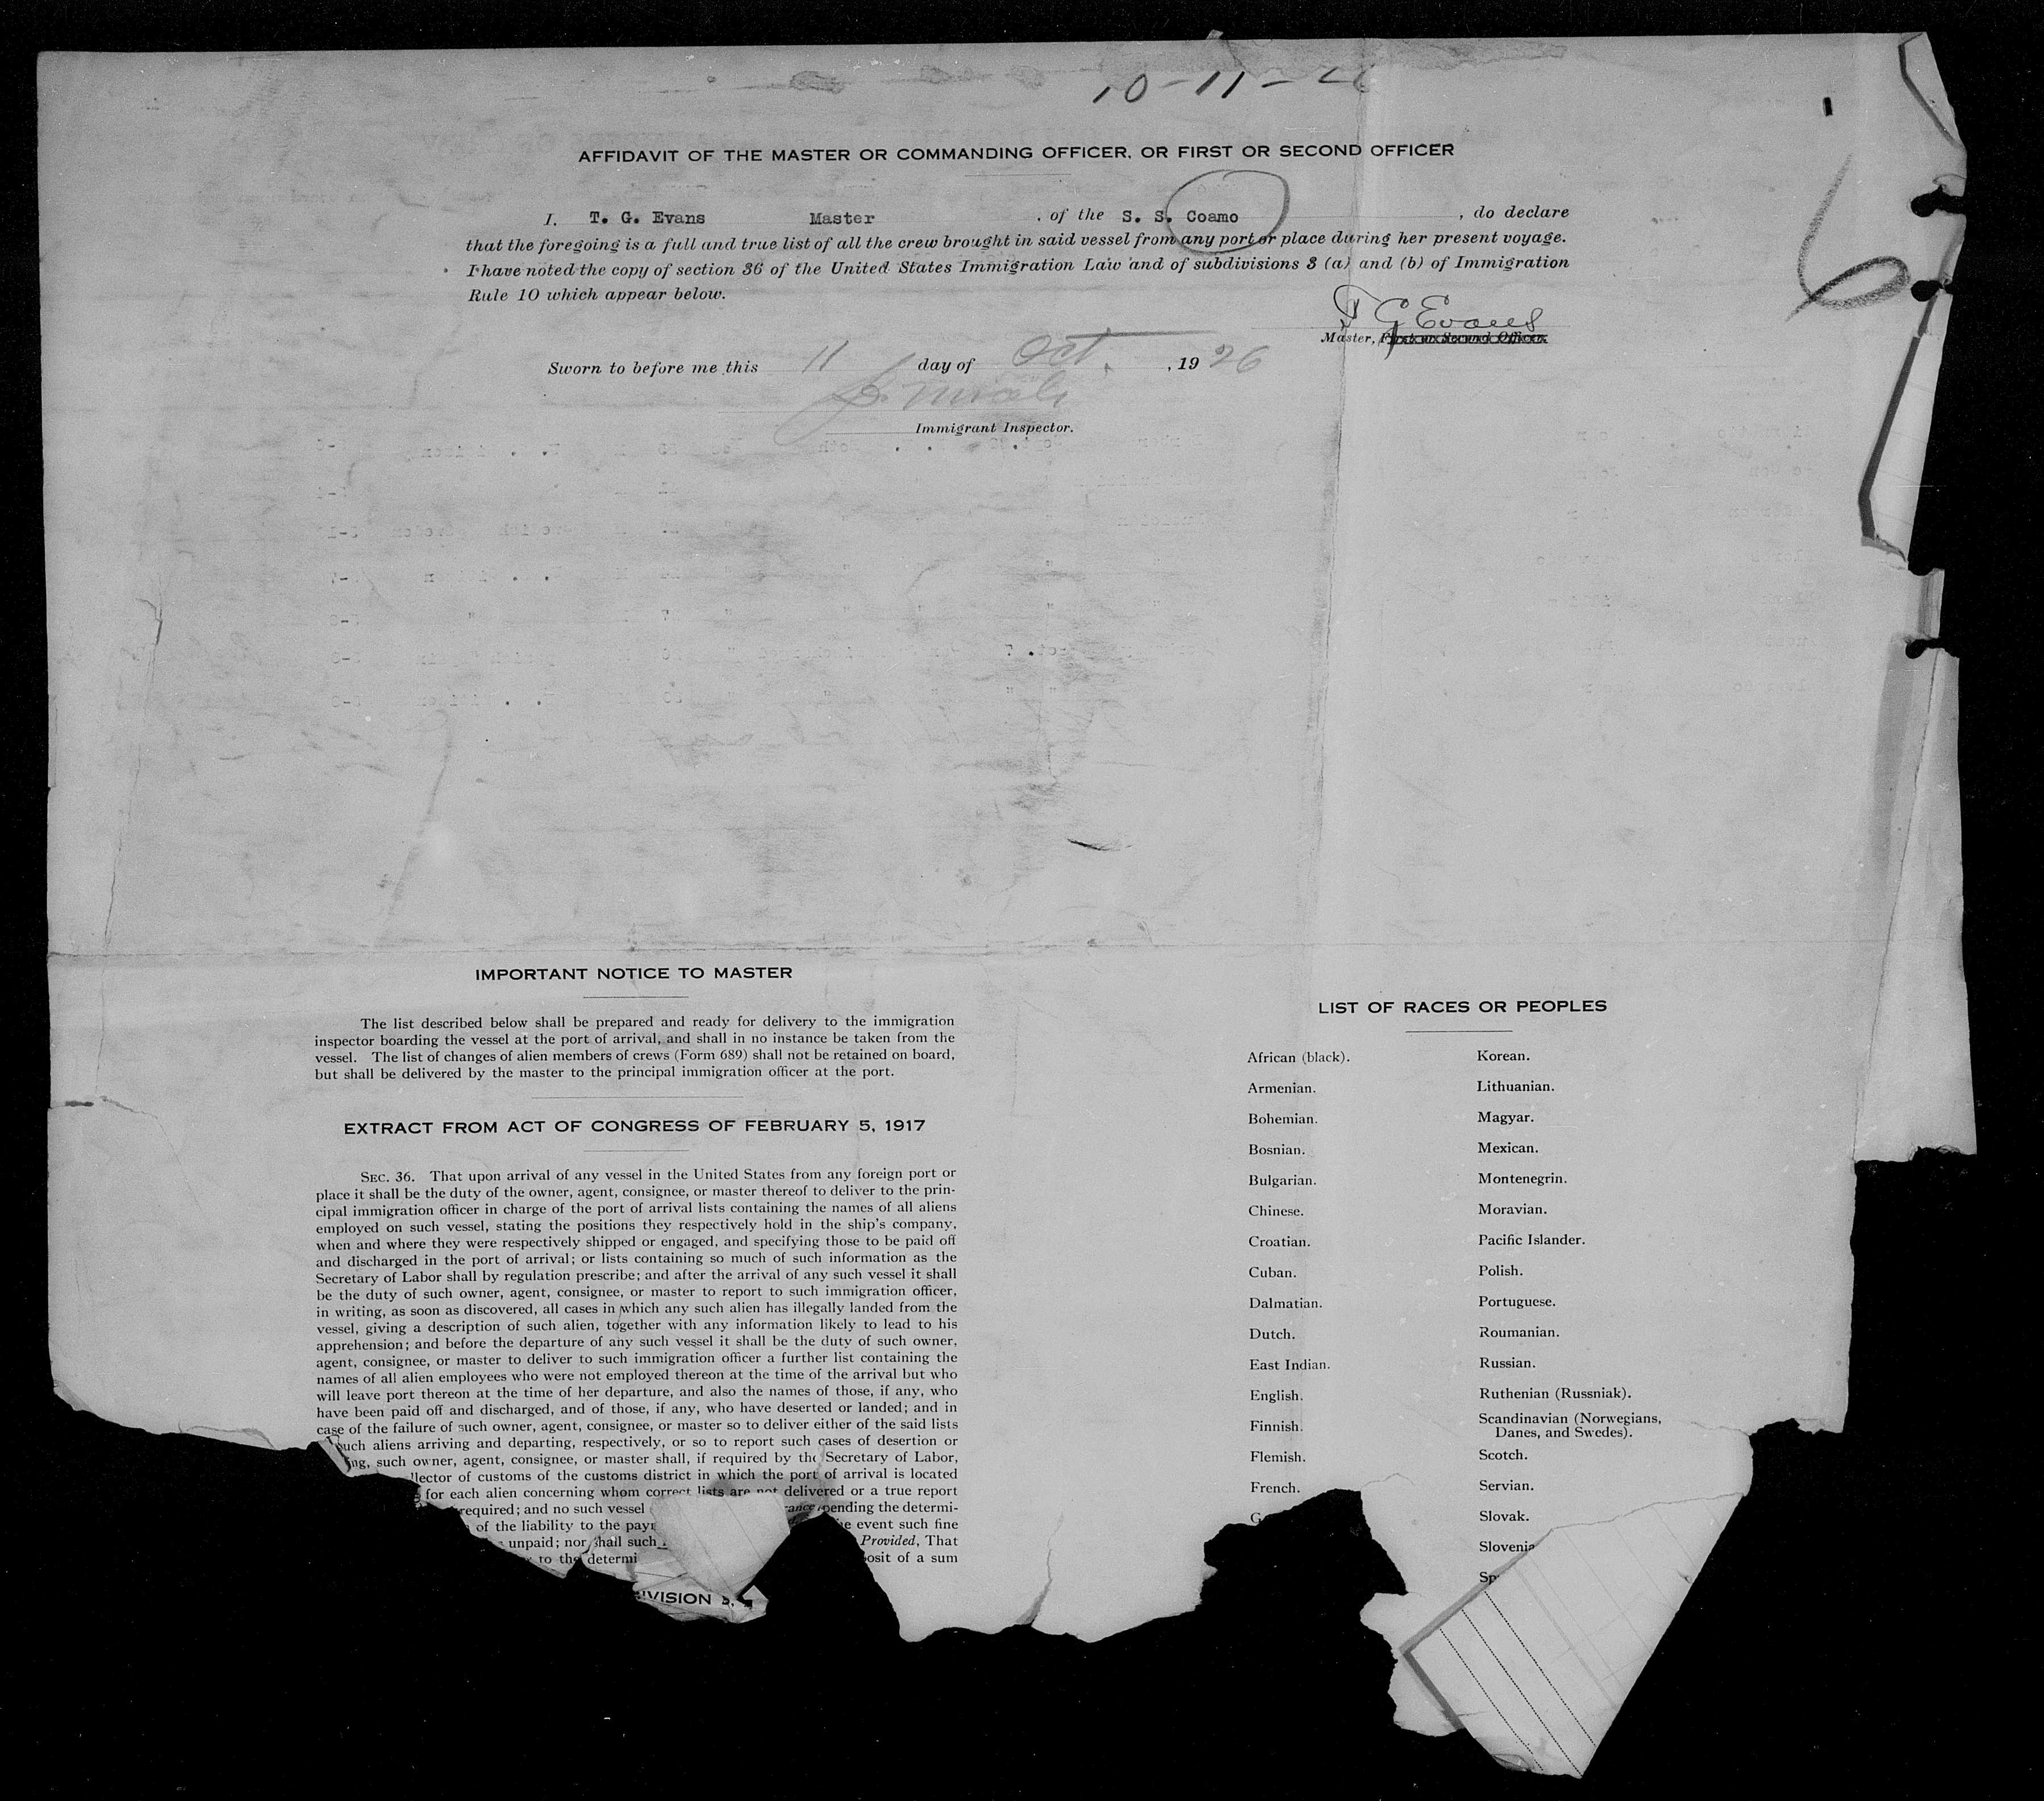 10-11-26
6
AFFIDAVIT OF THE MASTER OR COMMANDING OFFICER, OR FIRST OR SECOND OFFICER
I, T. G. Evans Master , of the S. S. Coamo , do declare
that the foregoing is a full and true list of all the crew brought in said vessel from any port or place during her present voyage.
I have noted the copy of section 36 of the United States Immigration Law and of subdivisions 3 (a) and (b) of Immigration
Rule 10 which appear below.
T G Evans
Master, First or Second Officer.
Sworn to before me this 11 day of Oct. , 1926
Immigrant Inspector.
IMPORTANT NOTICE TO MASTER
The list described below shall be prepared and ready for delivery to the immigration
inspector boarding the vessel at the port of arrival, and shall in no instance be taken from the
vessel. The list of changes of alien members of crews (Form 689) shall not be retained on board,
but shall be delivered by the master to the principal immigration officer at the port.
EXTRACT FROM ACT OF CONGRESS OF FEBRUARY 5, 1917
SEC. 36. That upon arrival of any vessel in the United States from any foreign port or
place it shall be the duty of the owner, agent, consignee, or master thereof to deliver to the prin-
cipal immigration officer in charge of the port of arrival lists containing the names of all aliens
employed on such vessel, stating the positions they respectively hold in the ship's company,
when and where they were respectively shipped or engaged, and specifying those to be paid off
and discharged in the port of arrival; or lists containing so much of such information as the
Secretary of Labor shall by regulation prescribe; and after the arrival of any such vessel it shall
be the duty of such owner, agent, consignee, or master to report to such immigration officer,
in writing, as soon as discovered, all cases in which any such alien has illegally landed from the
vessel, giving a description of such alien, together with any information likely to lead to his
apprehension; and before the departure of any such vessel it shall be the duty of such owner,
agent, consignee, or master to deliver to such immigration officer a further list containing the
names of all alien employees who were not employed thereon at the time of the arrival but who
will leave port thereon at the time of her departure, and also the names of those, if any, who
have been paid off and discharged, and of those, if any, who have deserted or landed; and in
case of the failure of such owner, agent, consignee, or master so to deliver either of the said lists
such aliens arriving and departing, respectively, or so to report such cases of desertion or
ng, such owner, agent, consignee, or master shall, if required by the Secretary of Labor,
llector of customs of the customs district in which the port of arrival is located
for each alien concerning whom correct lists are not delivered or a true report
required; and no such vessel rance pending the determi-
of the liability to the payn e event such fine
unpaid; nor shall such Provided, That
to the determi osit of a sum
IVISION 3,
LIST OF RACES OR PEOPLES
African (black).
Armenian.
Bohemian.
Bosnian.
Bulgarian.
Chinese.
Croatian.
Cuban.
Dalmatian.
Dutch.
East Indian.
English.
Finnish.
Flemish.
French.
G
Korean.
Lithuanian.
Magyar.
Mexican.
Montenegrin.
Moravian.
Pacific Islander.
Polish.
Portuguese.
Roumanian.
Russian.
Ruthenian (Russniak).
Scandinavian (Norwegians,
Danes, and Swedes).
Scotch.
Servian.
Slovak.
Slovenia
Sp